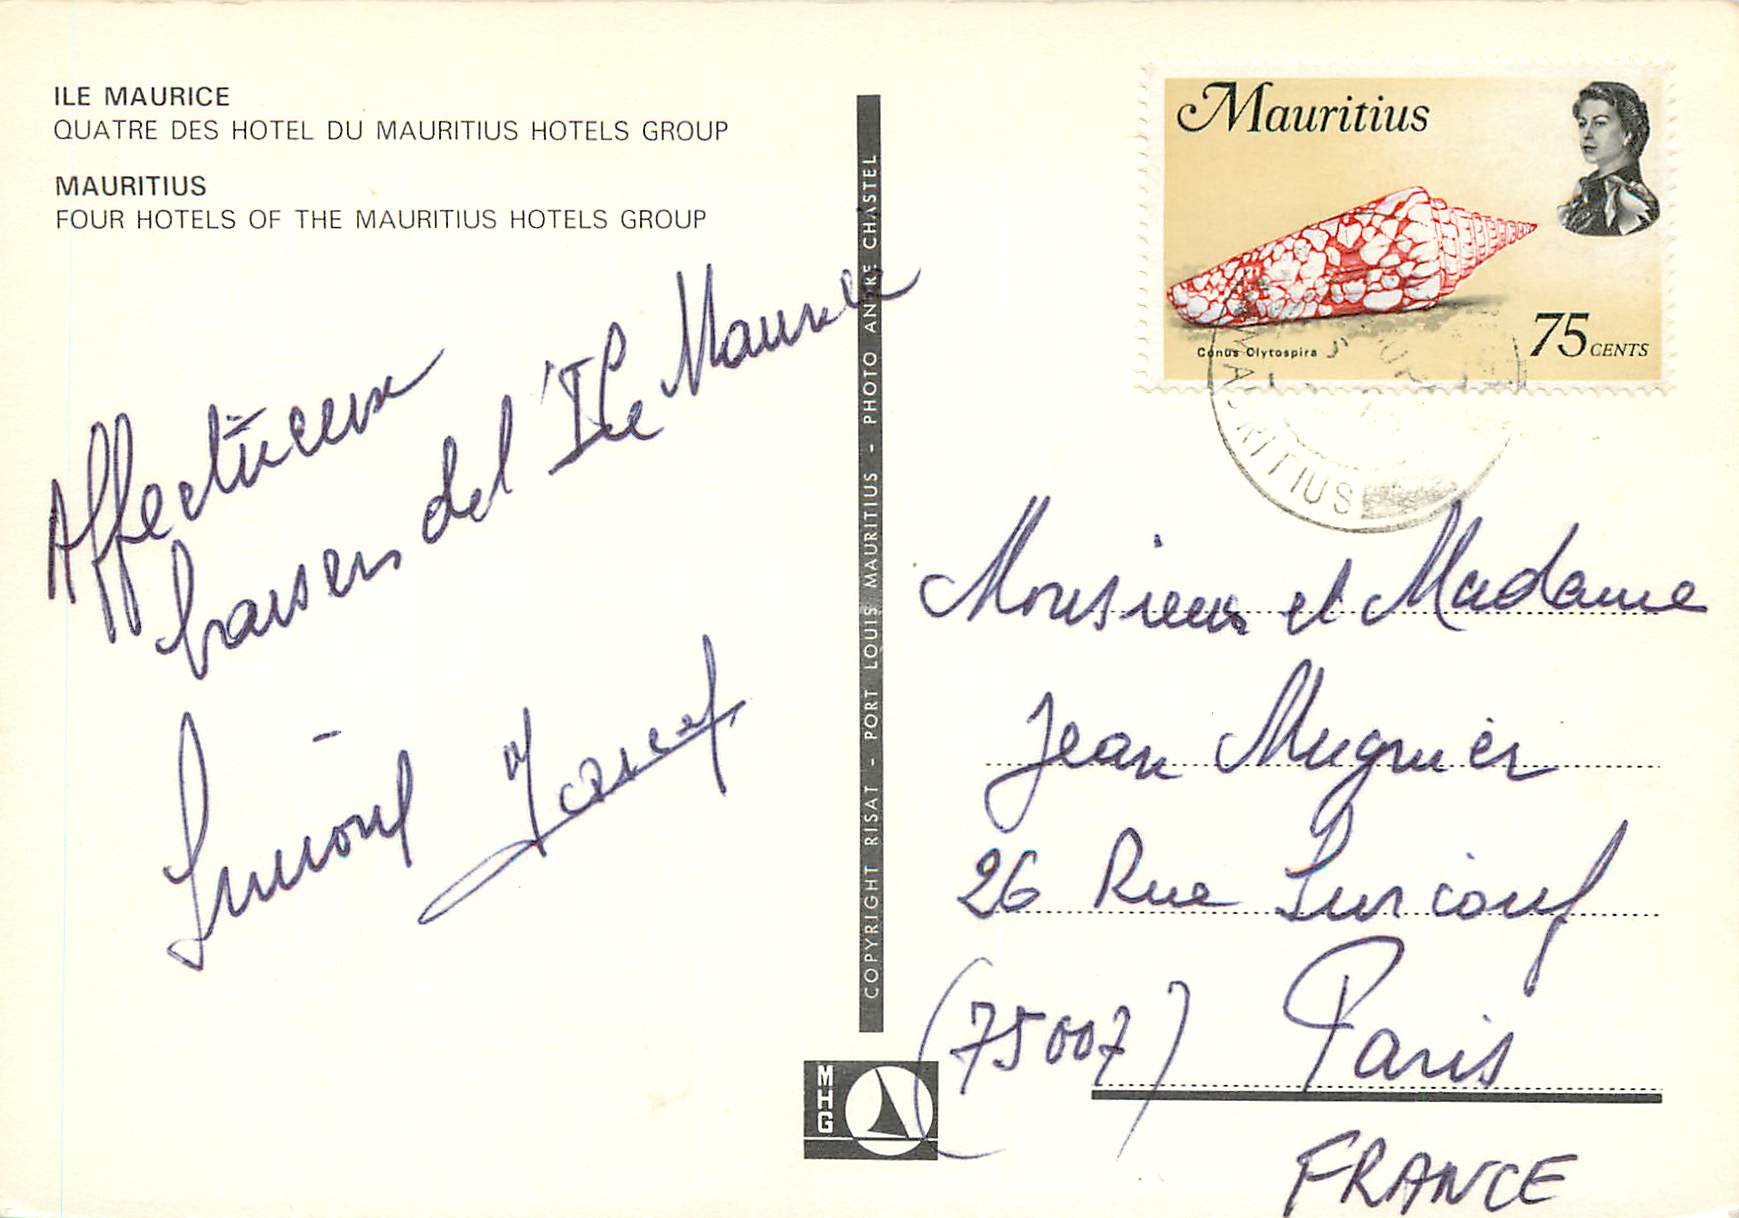 ILE MAURICE
QUATRE DES HOTEL DU MAURITIUS HOTELS GROUP
MAURITIUS
FOUR HOTELS OF THE MAURITIUS HOTELS GROUP
Affectueux
baisers de l'Ile Maurice
COPYRIGHT RISAT - PORT LOUIS MAURITIUS - PHOTO ANDRE CHASTEL
MHG
Mauritius
Conus Clytospira
75 CENTS
MAURITIUS
Monsieur et Madame
Jean Mugnier
26 Rue Surcouf
(75007) Paris
FRANCE